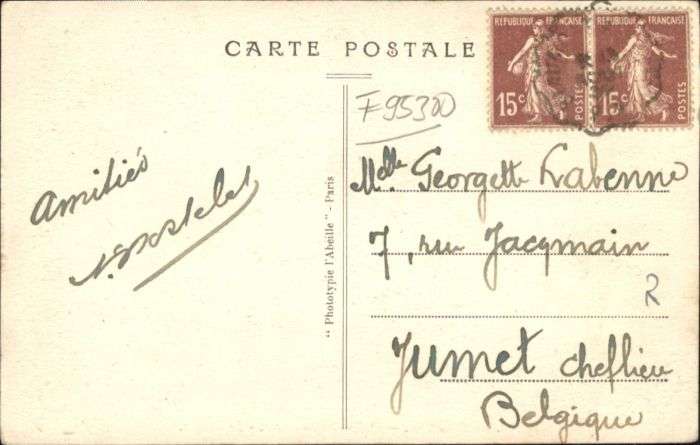 CARTE POSTALE
REPUBLIQUE FRANÇAISE
15c POSTES
REPUBLIQUE FRANÇAISE
15c POSTES
F95300
Amitiés
"Phototypie l'Abeille" - Paris
Melle Georgette Labenne
7, rue Jacqmain
R
Jumet cheflieu
Belgique